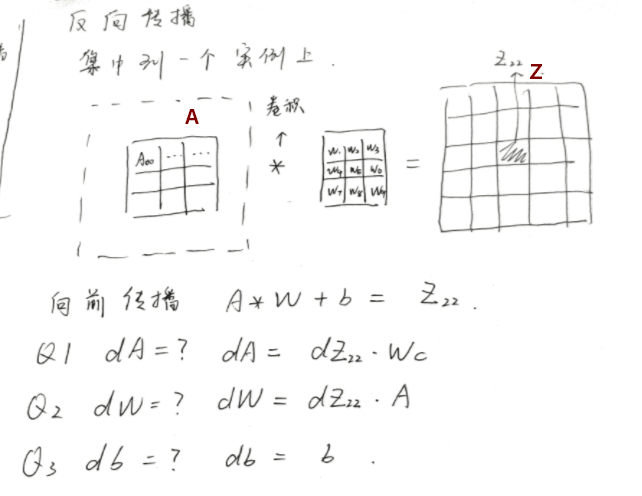 反向传播
集中到一个实例上.
Z₂₂ Z
A 卷积
A₀₀ ... ... * W₁ W₂ W₃ =
W₇ W₈ W₉
向前传播 A * W + b = Z₂₂.
Q1 dA = ? dA = dZ₂₂ · Wc
Q₂ dW = ? dW = dZ₂₂ · A
Q₃ db = ? db = b.